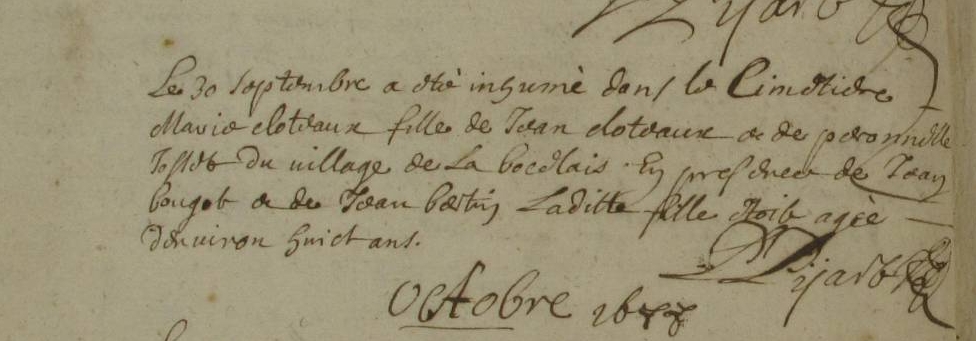 Le 30 septembre a eté inhumé dans le Cimetiere
Marie eloteaux fille de Jean eloteaux & de peronnelle
Josset du village de La bocelais. En presence de Jean
bougot & de Jean bertin Laditte fille etoit agée
denuiron huict ans.
Octobre 1677